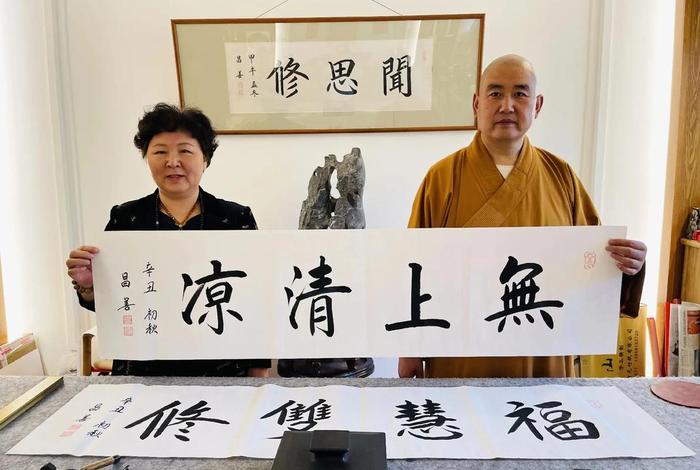 聞思修
甲午孟冬
昌善
無上清涼
辛丑初秋
昌善
福慧雙修
辛丑初秋
昌善